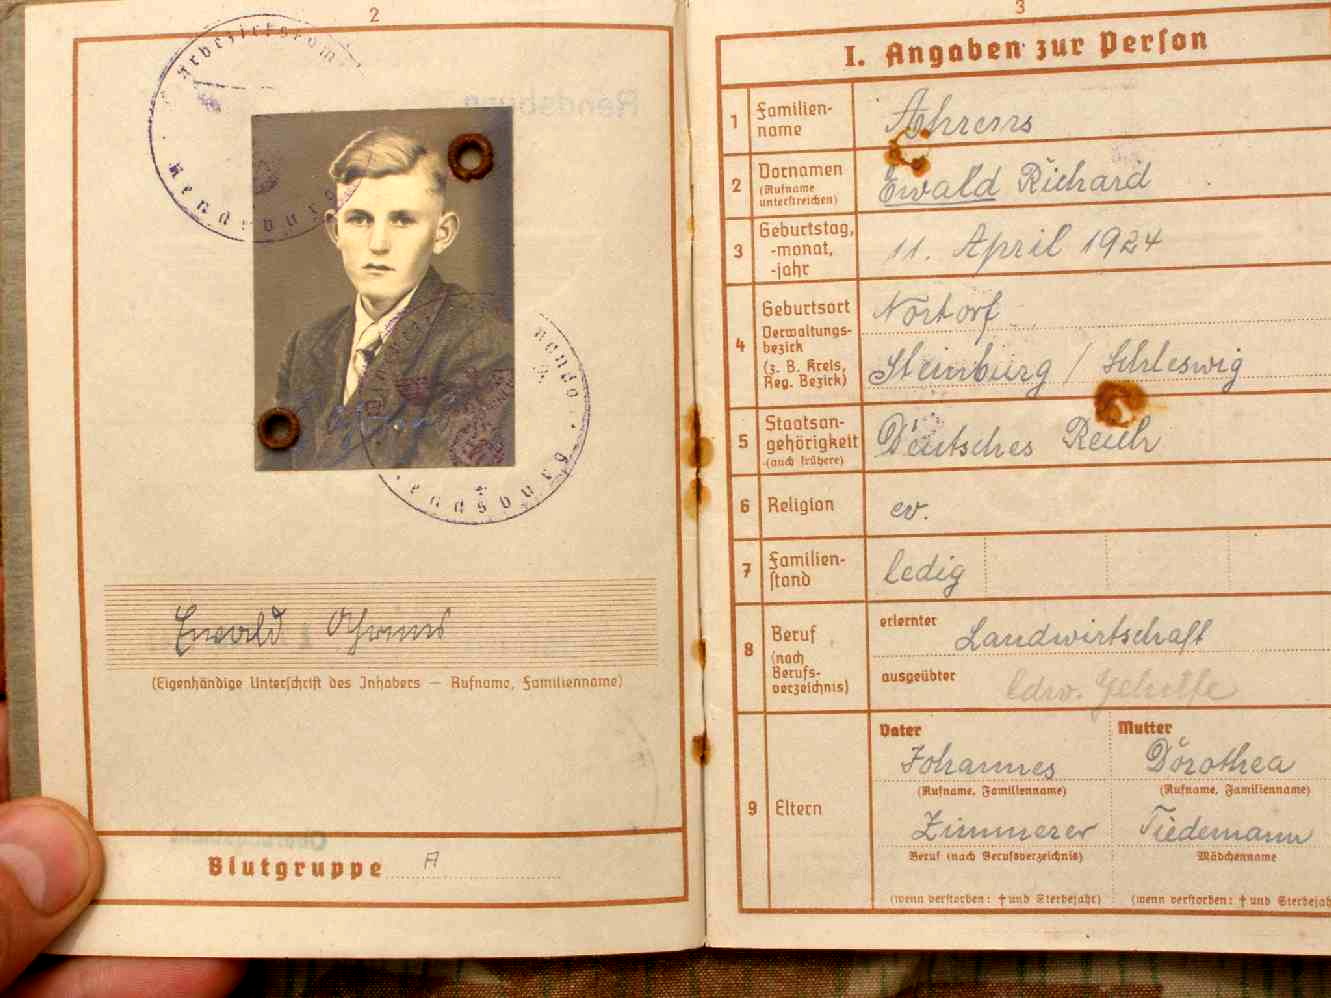 2
Rendsburg
Ewald Ahrens
(Eigenhändige Unterschrift des Inhabers — Rufname, Familienname)
Blutgruppe A
3
I. Angaben zur Person
1 Familien-
name
Ahrens
2 Vornamen
(Rufname
unterstreichen)
Ewald Richard
3 Geburtstag,
-monat,
-jahr
11. April 1924
4 Geburtsort
Verwaltungs-
bezirk
(z. B. Kreis,
Reg. Bezirk)
Nortorf
Steinburg / Schleswig
5 Staatsan-
gehörigkeit
(auch frühere)
Deutsches Reich
6 Religion
ev.
7 Familien-
stand
ledig
8 Beruf
(nach
Berufs-
verzeichnis)
erlernter Landwirtschaft
ausgeübter ldw. Gehilfe
9 Eltern
Vater
Johannes
(Rufname, Familienname)
Zimmerer
Beruf (nach Berufsverzeichnis)
(wenn verstorben: † und Sterbejahr)
Mutter
Dorothea
(Rufname, Familienname)
Tiedemann
Mädchenname
(wenn verstorben: † und Sterbejah